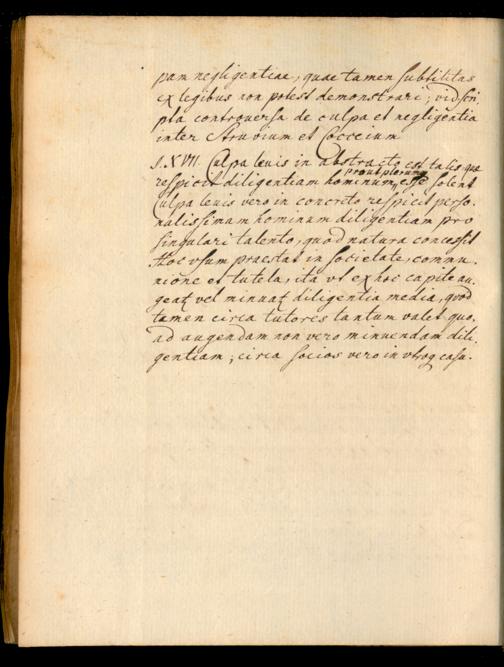 pam negligentiae, quae tamen subtilitas
ex legibus non potest demonstrari; vid scri-
pta controversa de culpa et negligentia
inter Struvium et Cocceium
§. XVII. Culpa levis in abstracto est talis quae
respicit diligentiam hominum, prout plerumq esse solent
Culpa leuis vero in concreto respicit perso-
nalissimam hominum diligentiam pro
singulari talento, quod natura concessit
Hoc vsum praestat in societate, commu-
nione et tutela, ita vt ex hoc capite au-
geat vel minuat diligentia media, quod
tamen circa tutores tantum valet quo-
ad augendam non vero minuendam dili-
gentiam; circa socios vero in vtroq casu.